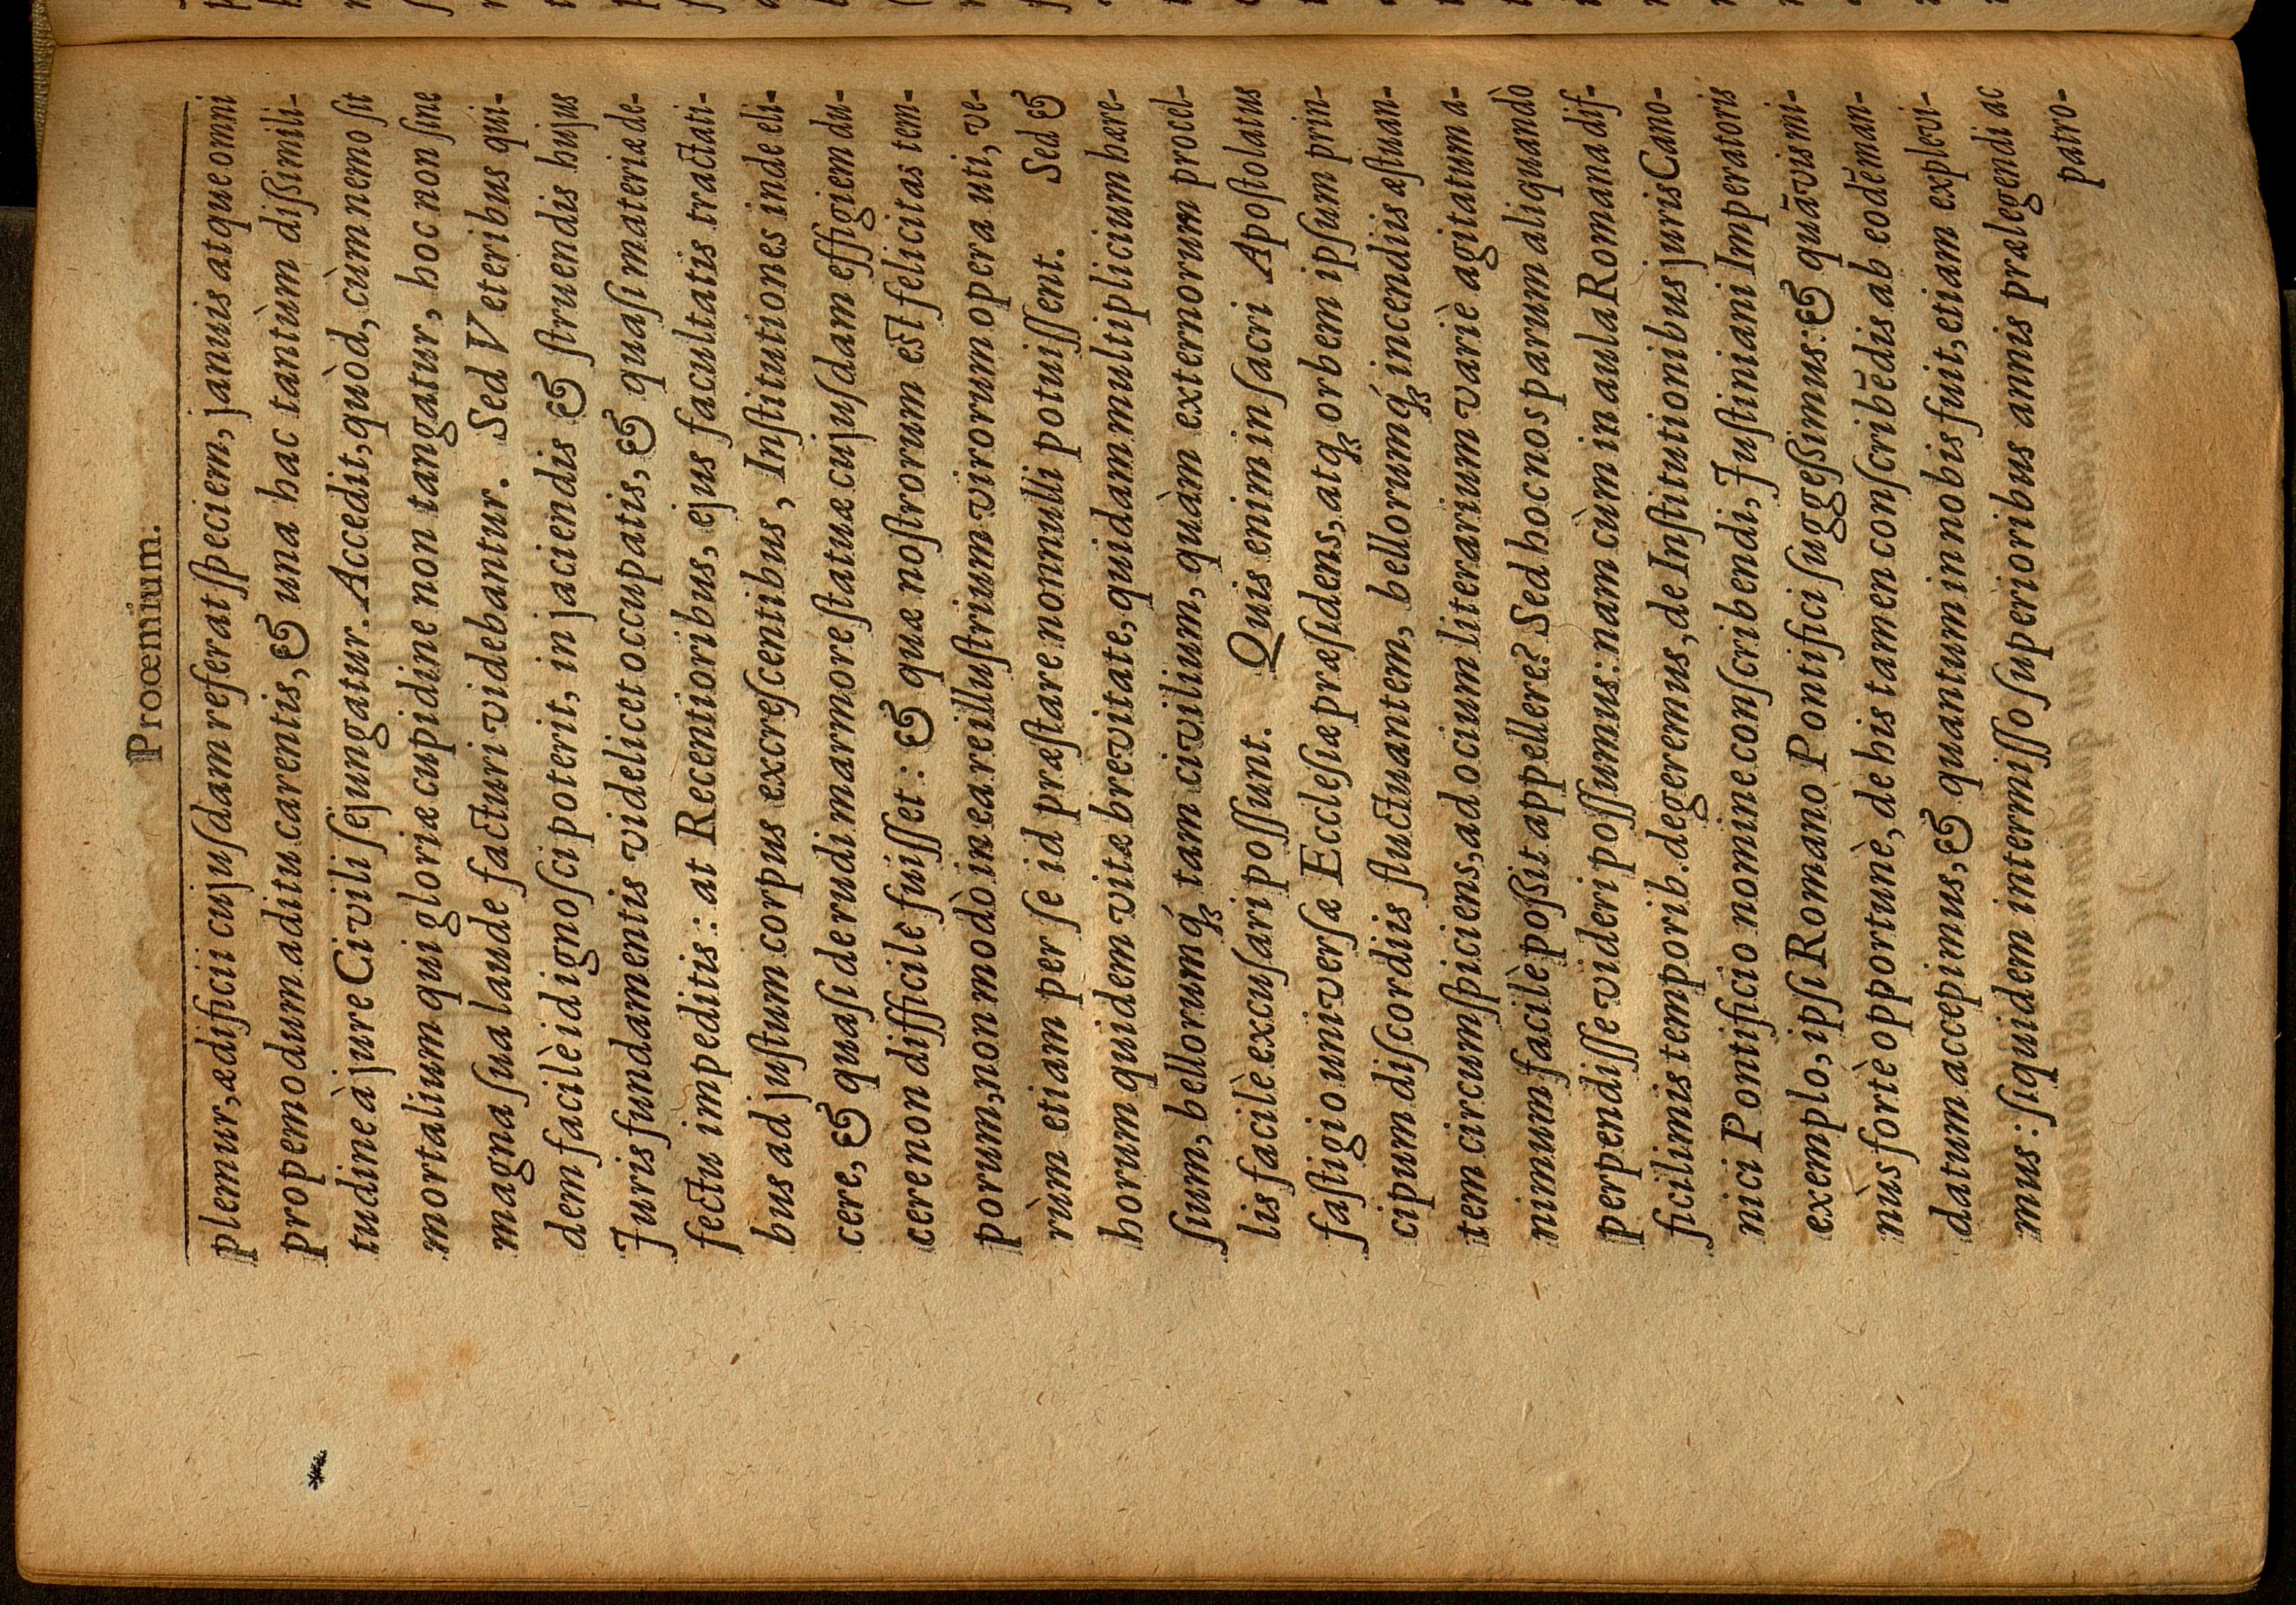 Proœmium.
plemur, ædificii cujuſdam referat ſpeciem, januis atque omni
propemodum aditu carentis, & una hac tantùm diſsimili-
tudine à jure Civili ſejungatur. Accedit, quòd, cùm nemo ſit
mortalium qui gloriæ cupidine non tangatur, hoc non ſine
magna ſua laude facturi videbantur. Sed Veteribus qui-
dem facilè id ignoſci poterit, in jaciendis & ſtruendis hujus
Juris fundamentis videlicet occupatis, & quaſi materiæ de-
fectu impeditis: at Recentioribus, ejus facultatis tractati-
bus ad juſtum corpus excreſcentibus, Inſtitutiones inde eli-
cere, & quaſi de rudi marmore ſtatuæ cujuſdam effigiem du-
cere non difficile fuiſſet: & quæ noſtrorum eſt felicitas tem-
porum, non modò in ea re illuſtrium virorum opera uti, ve-
rùm etiam per ſe id præſtare nonnulli potuiſſent. Sed &
horum quidem vitæ brevitate, quidam multiplicium hære-
ſium, bellorumq́ꝫ tam civilium, quàm externorum procel-
lis facilè excuſari poſſunt. Quis enim in ſacri Apoſtolatus
faſtigio univerſæ Eccleſiæ præſidens, atqꝫ orbem ipſum prin-
cipum diſcordiis fluctuantem, bellorumq́ꝫ incendiis æſtuan-
tem circumſpiciens, ad ocium literarium variè agitatum a-
nimum facilè poſsit appellere? Sed hoc nos parum aliquandò
perpendiſſe videri poſſumus: nam cùm in aula Romana dif-
ficilimis temporib. degeremus, de Inſtitutionibus juris Cano-
nici Pontificio nomine conſcribendi, Juſtiniani Imperatoris
exemplo, ipſi Romano Pontifici ſuggeſsimus: & quāvis mi-
nùs fortè opportunè, de his tamen conſcribēdis ab eodē man-
datum accepimus, & quantum in nobis fuit, etiam explevi-
mus: ſiquidem intermiſſo ſuperioribus annis prælegendi ac
patro-